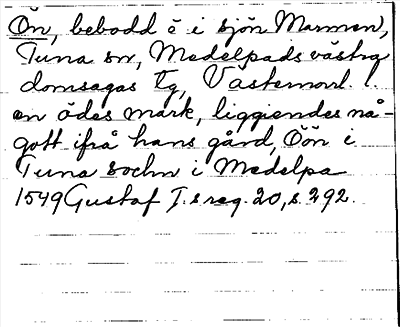 Ön, bebodd ö i sjön Marmen,
Tuna sn, Medelpads västra
domsagas tg, Västernorrl. l.
en ödes mark, liggiendes nå-
gott ifrå hans gård, Öön i
Tuna sochn i Medelpa
1549 Gustaf I.s reg. 20, s. 292.